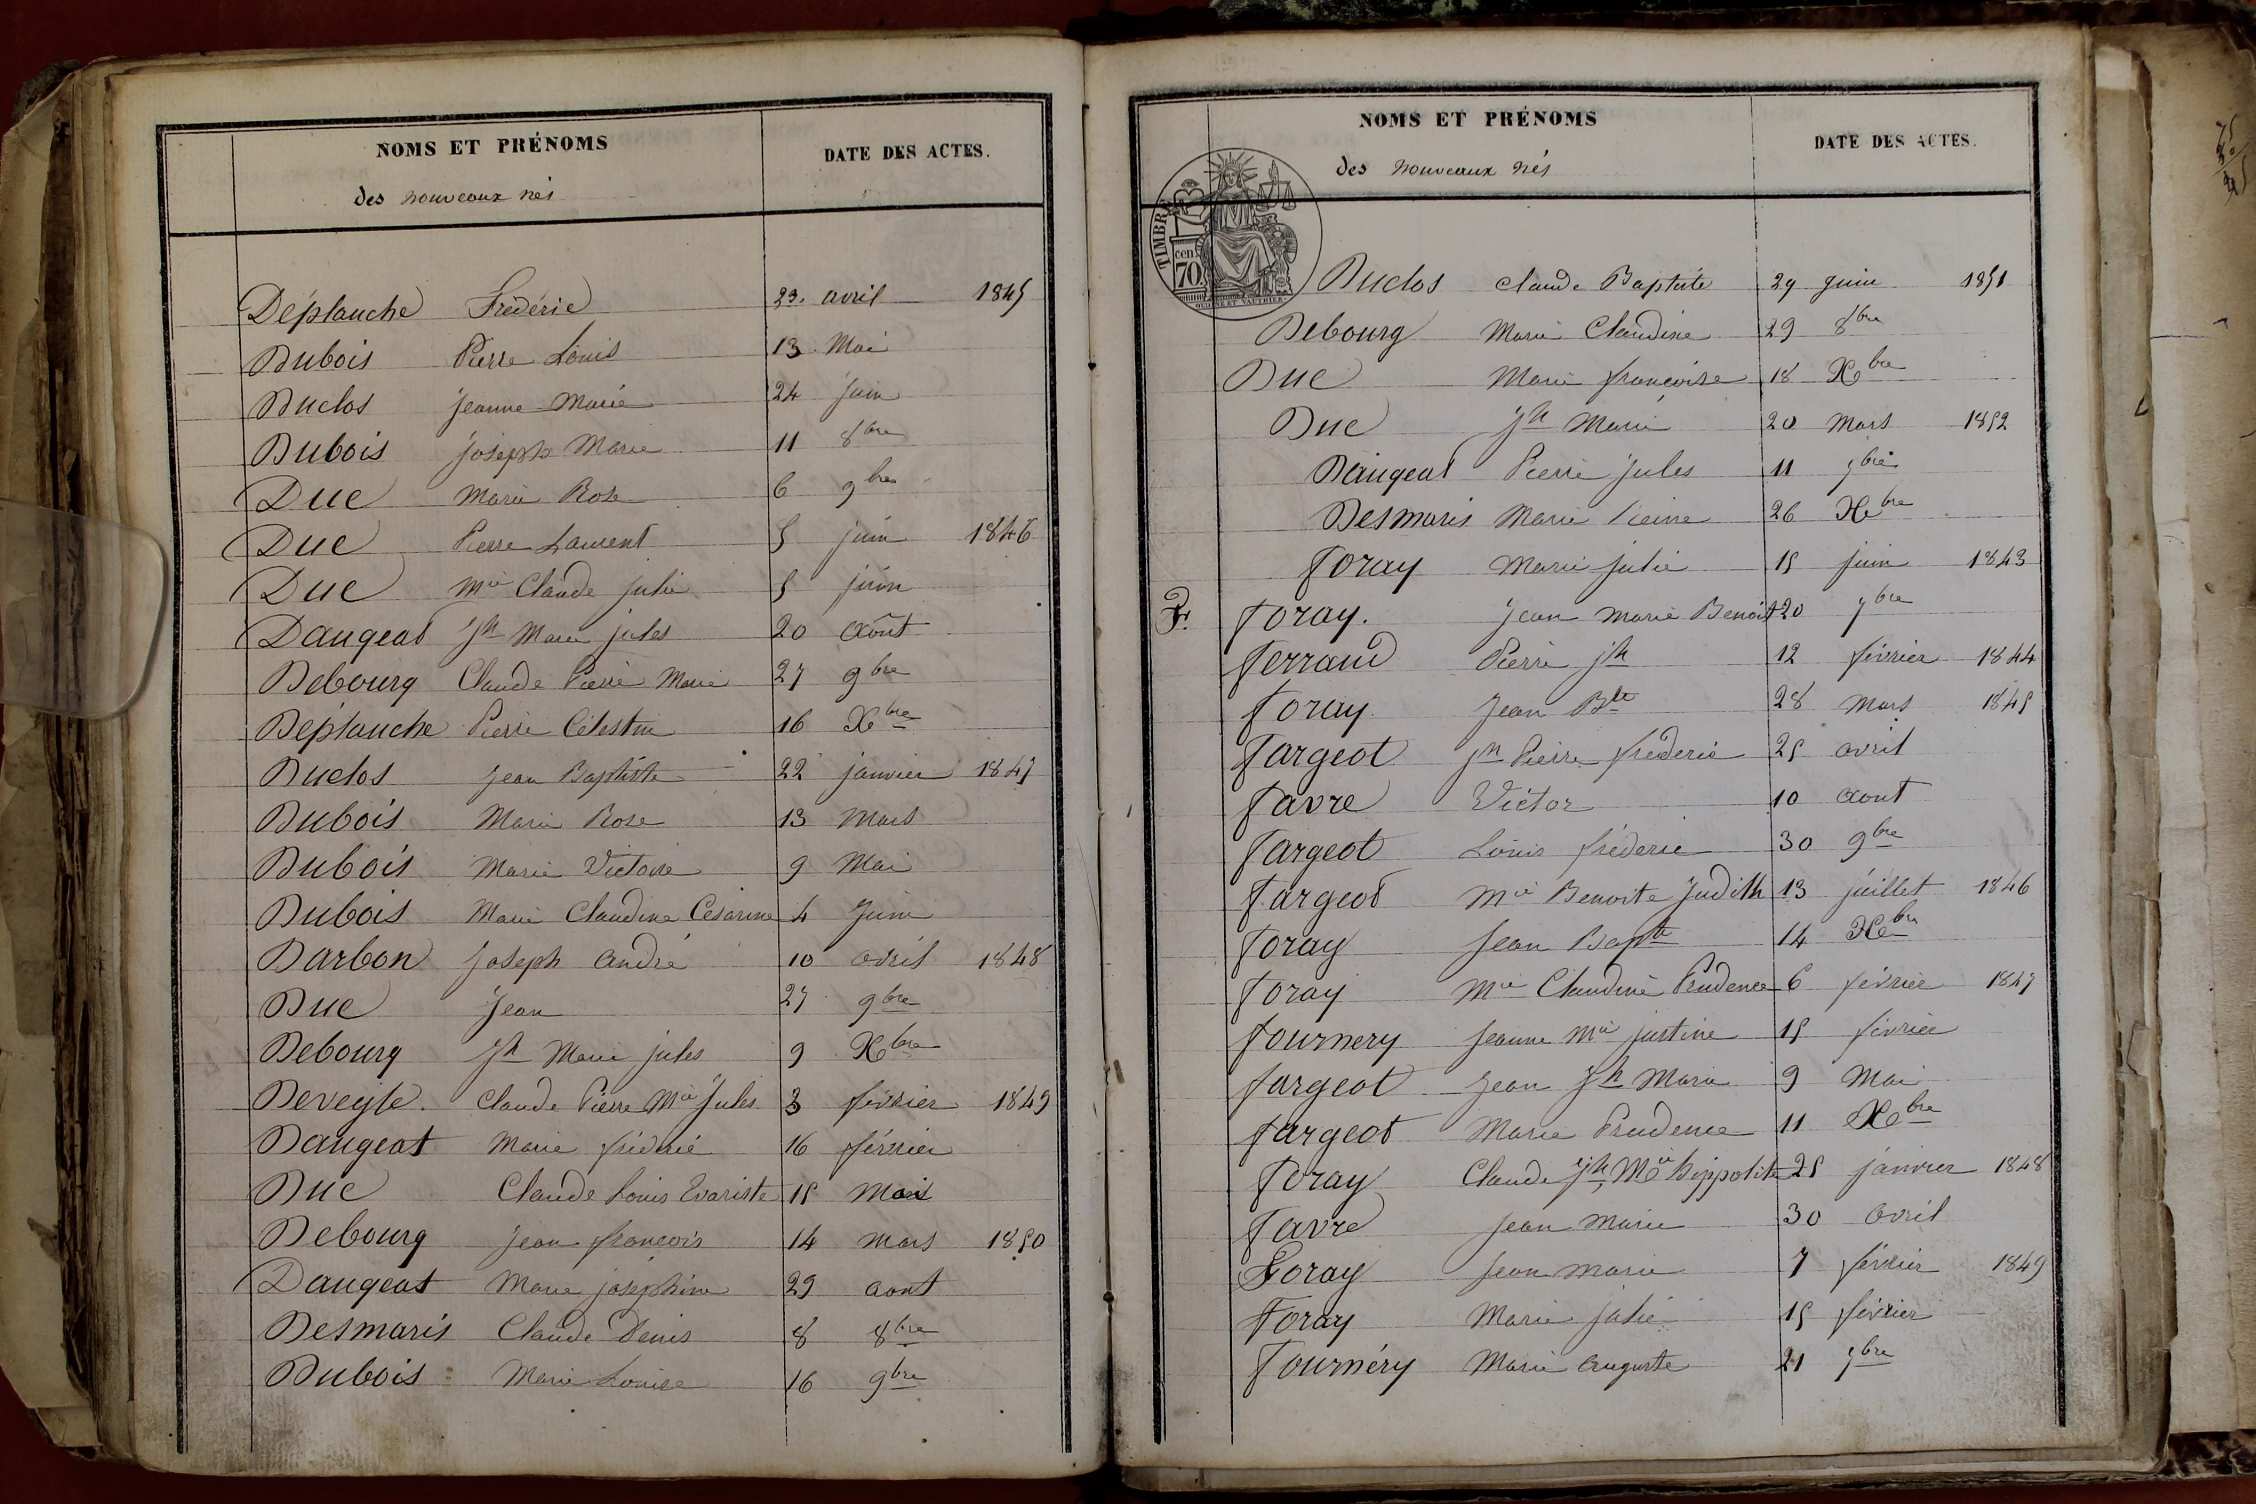 NOMS ET PRÉNOMS
des nouveaux nés
DATE DES ACTES.
Déplanche Frédéric 23. avril 1845
Dubois Pierre Louis 13 Mai
Duclos Jeanne Marie 24 Juin
Dubois Joseph Marie 11 8bre
Duc Marie Rose 6 9bre
Duc Pierre Laurent 5 juin 1846
Duc Mie Claude julie 5 juin
Daugeat Jh Marie jules 20 Août
Debourg Claude Pierre Marie 27 9bre
Déplanche Pierre Célestin 16 Xbre
Duclos Jean Baptiste 22 janvier 1847
Dubois Marie Rose 13 Mars
Dubois Marie Victoire 9 Mai
Dubois Marie Claudine Césarine 4 Juin
Darbon Joseph André 10 avril 1848
Duc Jean 27 9bre
Debourg Jh Marie jules 9 Xbre
Deveyle Claude Pierre Mie Jules 3 février 1849
Daugeat Marie fréderic 16 février
Duc Claude Louis Evariste 15 Mars
Debourg Jean françois 14 mars 1850
Daugeat Marie joséphine 29 aout
Desmaris Claude Denis 8 8bre
Dubois Marie Louise 16 9bre
NOMS ET PRÉNOMS
des nouveaux nés
DATE DES ACTES.
TIMBRE
cen
70
Duclos Claude Baptiste 29 juin 1851
Debourg Marie Claudine 29 8bre
Duc Marie françoise 18 Xbre
Duc Jh Marie 20 Mars 1852
Daugeat Pierre Jules 11 7bre
Desmaris Marie Pierre 26 Xbre
Foray Marie julie 15 juin 1843
F. Foray. Jean Marie Benoit 20 7bre
Ferraud Pierre jh 12 février 1844
Foray Jean Bte 28 Mars 1845
Fargeot jn Pierre fréderic 25 avril
Favre Victor 10 Aout
Fargeot Louis fréderic 30 9bre
Fargeot Mie Benoite Judith 13 juillet 1846
Foray Jean Bapte 14 Xbre
Foray Mie Claudine Prudence 6 février 1847
fournery Jeanne Mie justine 15 février
fargeot Jean Jh Marie 9 Mai
fargeot Marie Prudence 11 Xbre
Foray Claude Jh Mie hippolite 25 janvier 1848
Favre Jean Marie 30 Avril
Foray Jean Marie 7 février 1849
Foray Marie julie 15 février
Fournéry Marie Auguste 21 7bre